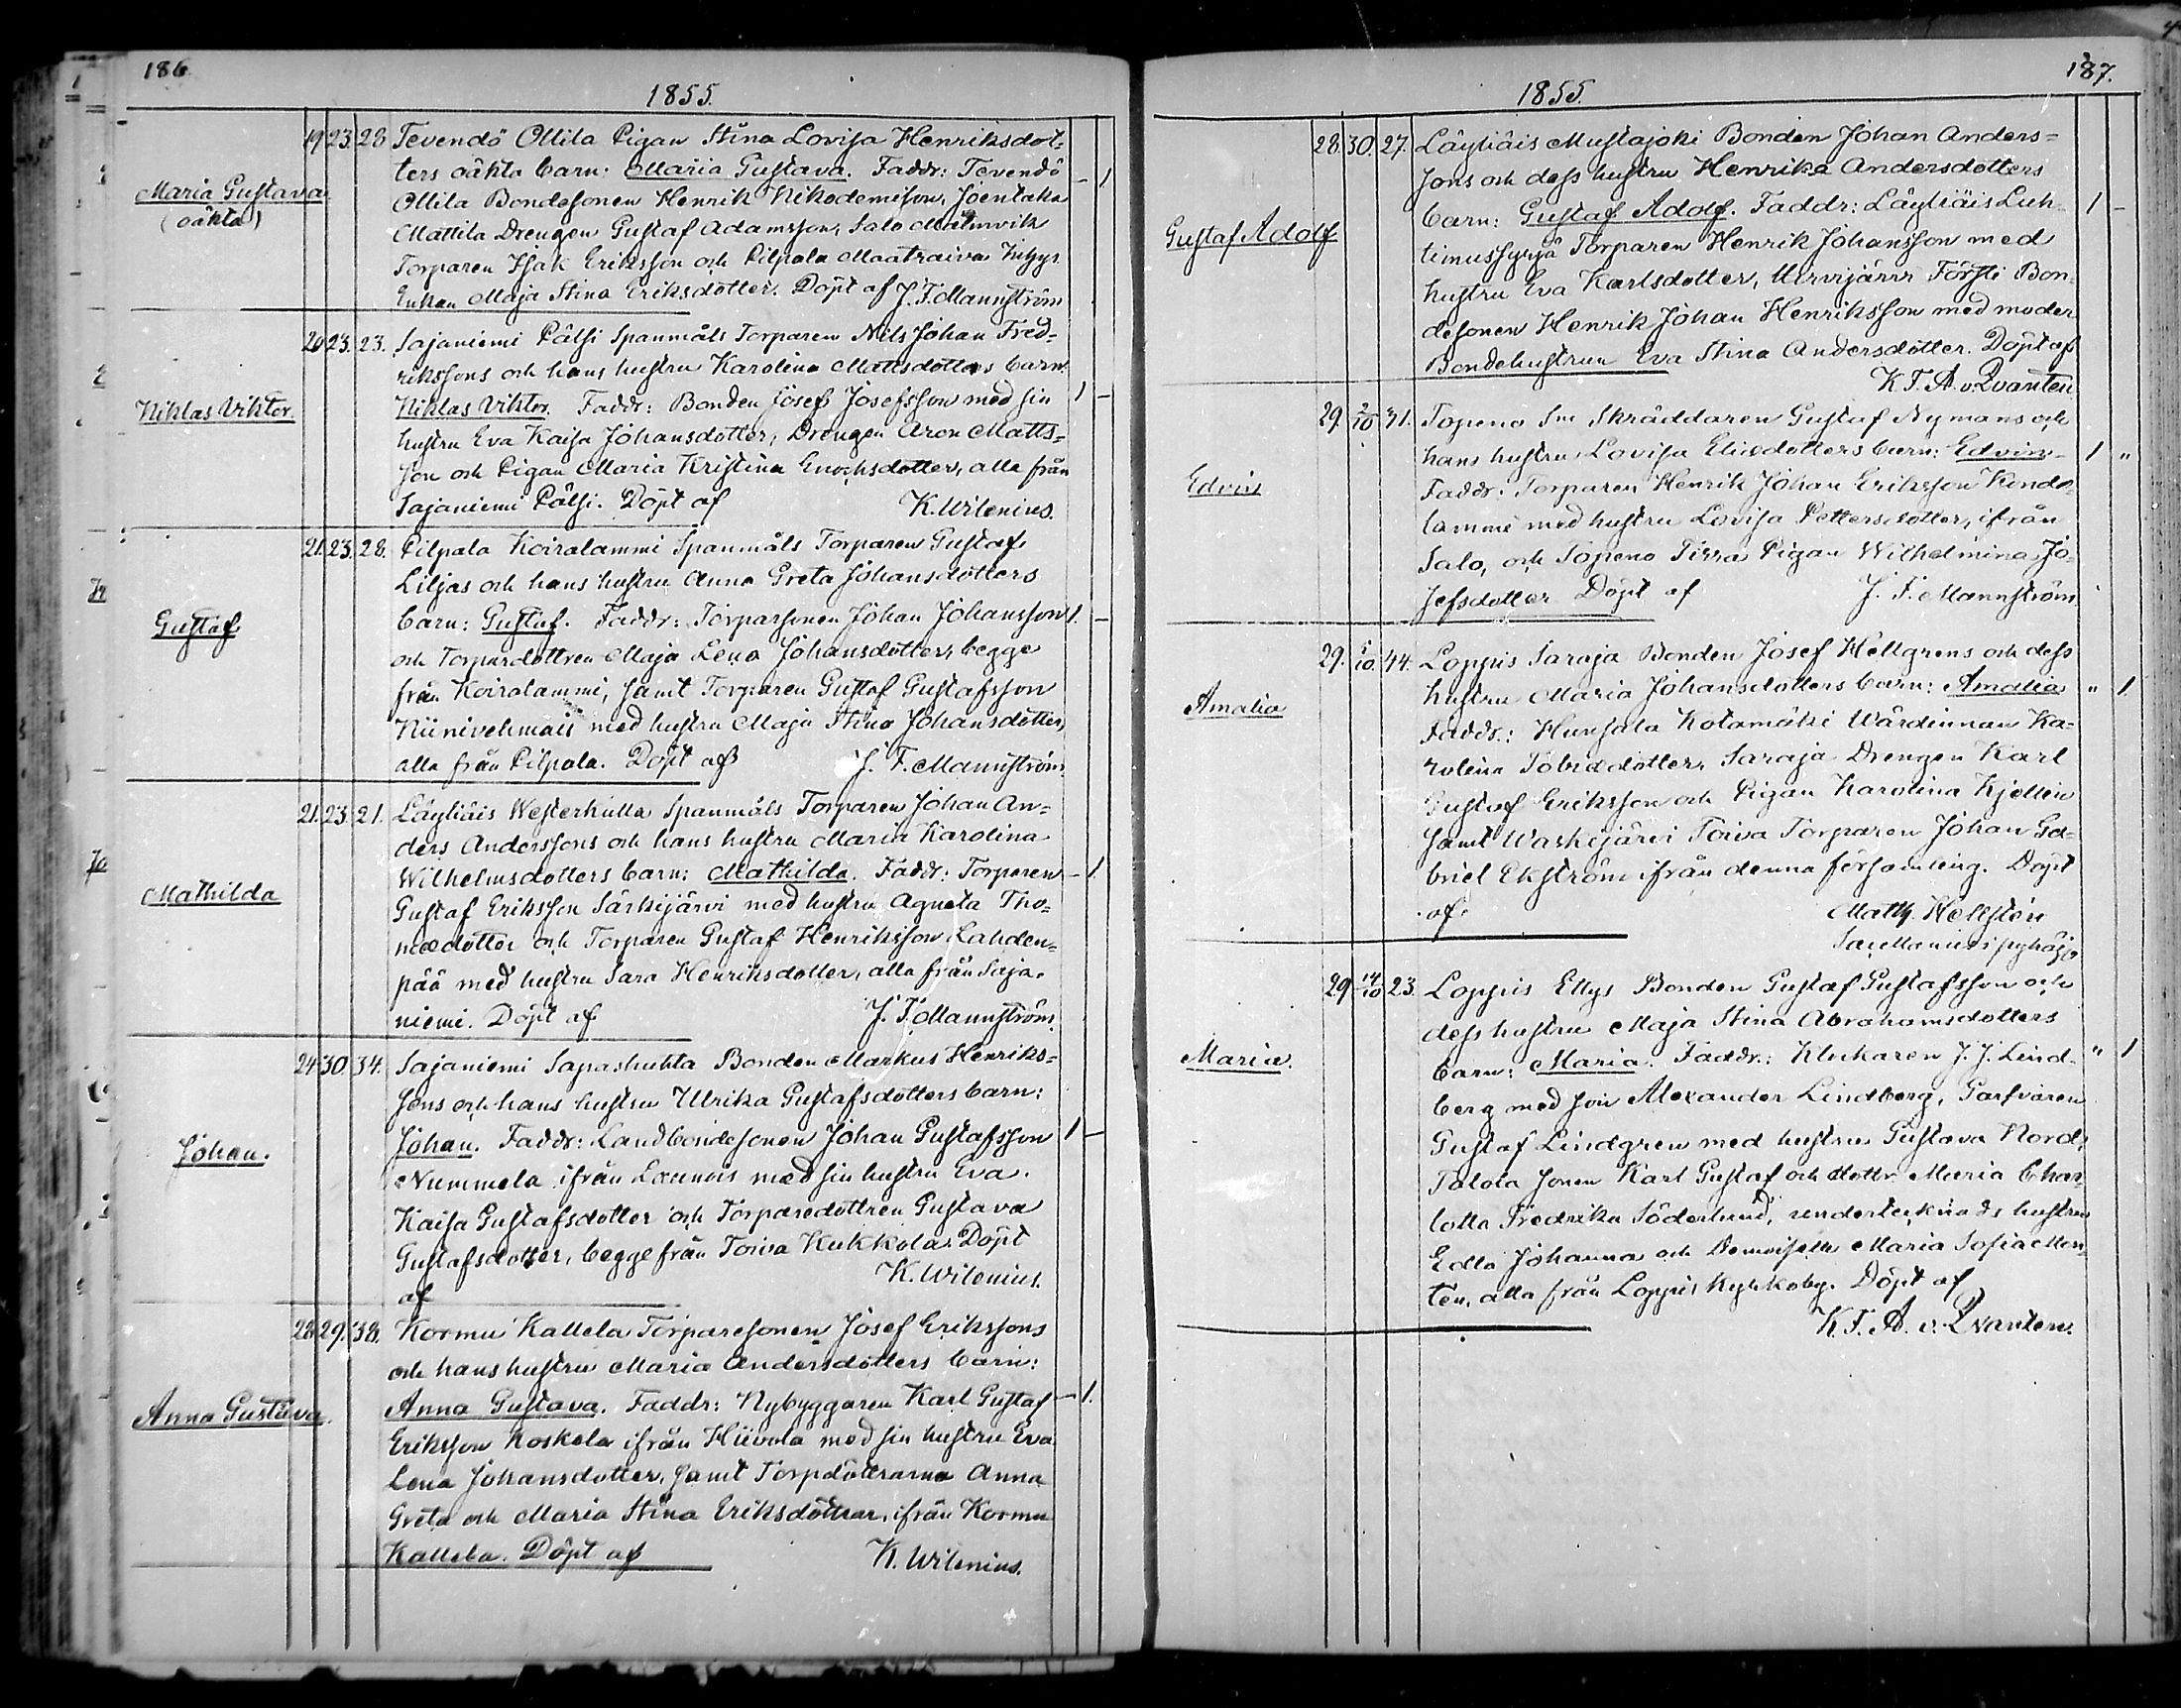 186
1855.
19. 23. 28 Tevendö Ollila Pigan Stina Lovisa Henriksdot-
ters oäkta barn: Maria Gustava. Faddr: Tevendö - 1
Maria Gustava
(oäkta)
Ollila Bondesonen Henrik Nikodemison, Joentaka
Mattila Drengen Gustaf Adamsson, Salo Malmvik
Torparen Isak Eriksson och Pilpala Maatraiva Inhys
Enkan Maja Stina Eriksdotter. Döpt af J. F. Mannström
20 23. 23. Sajaniemi Pälsi Spanmåls Torparen Nils Johan Fred-
rikssons och hans hustru Karolina Mattsdotters barn
Niklas Viktor. Niklas Viktor. Faddr: Bonden Josef Josefsson med sin 1 -
hustru Eva Kaisa Johansdotter, Drengen Aron Matts-
son och Pigan Maria Kristina Enochsdotter, alla från
Sajaniemi Pälsi. Döpt af K. Wilenius.
21. 23. 28. Pilpala Koiralammi Spanmåls Torparen Gustaf
Liljas och hans hustru Anna Greta Johansdotters
Gustaf barn: Gustaf. Faddr: Torparsonen Johan Johansson 1. -
och Torpardottren Maja Lena Johansdotter, begge
från Koiralammi, samt Torparen Gustaf Gustafsson
Niinivehmais med hustru Maja Stina Johansdotter,
alla från Pilpala. Döpt af J. F. Mannström
21. 23. 21. Läyliäis Westerkulla Spanmåls Torparen Johan An-
ders Anderssons och hans hustru Maria Karolina
Wilhelmsdotters barn: Mathilda. Faddr: Torparen - 1.
Mathilda Gustaf Eriksson Särkijärvi med hustru Agneta Tho-
masdotter och Torparen Gustaf Henriksson Lahden-
pää med hustru Sara Henriksdotter, alla från Saja-
niemi. Döpt af J. F. Mannström.
24. 30. 34. Sajaniemi Sapashuhta Bonden Markus Henriks-
sons och hans hustru Ulrika Gustafsdotters barn:
Johan. Johan. Faddr: Landbondesonen Johan Gustafsson 1 -
Nummela ifrån Lounais med sin hustru Eva
Kaisa Gustafsdotter och Torparedottren Gustava
Gustafsdotter, begge från Toiva Kukkola. Döpt
af K. Wilenius.
28. 29. 38. Kormu Kallela Torparesonen Josef Erikssons
och hans hustru Maria Andersdotters barn:
Anna Gustava. Anna Gustava. Faddr: Nybyggaren Karl Gustaf - 1.
Eriksson Koskela ifrån Hiivola med sin hustru Eva
Lena Johansdotter, samt Torpdöttrarna Anna
Greta och Maria Stina Eriksdöttrar, ifrån Kormu
Kallela. Döpt af K. Wilenius.
187.
1855.
28. 30. 27. Läyliäis Mustajoki Bonden Johan Anders-
sons och dess hustru Henrika Andersdotters
Gustaf Adolf barn: Gustaf Adolf. Faddr: Läyliäis Luh- 1 -
Torparen Henrik Johansson med
hustru Eva Karlsdotter, Försti Bon-
desonen Henrik Johan Henriksson med moder
Bondehustrun Eva Stina Andersdotter. Döpt af
K. F. A. v. Qvanten
29. 2/10 31. Topeno Sm Skräddaren Gustaf Nymans och
hans hustru Lovisa Eliedotters barn: Edvin 1 "
Edvin Faddr. Torparen Henrik Johan Eriksson Kondo-
lammi med hustru Lovisa Pettersdotter, ifrån
Salo, och Topeno Pirra Pigan Wilhelmina Jo-
sefsdotter Döpt af J. F. Mannström
29. 5/10. 44. Loppis Saraja Bonden Josef Hellgrens och dess
Amalia hustru Maria Johansdotters barn: Amalia " 1.
Faddr.: Hunsala Kotamäki Wärdinnan Ka-
rolina Tobiedotter, Saraja Drengen Karl
Gustaf Eriksson och Pigan Karolina Kjellin
samt Waskijärvi Toiva Torparen Johan Ga-
briel Ekström ifrån denna församling. Döpt
af. Math. Hellstén
29 14/10 23. Loppis Ellys Bonden Gustaf Gustafsson och
dess hustru Maja Stina Abrahamsdotters
Maria. barn: Maria. Faddr.: Klockaren J. J. Lind- " 1
berg med son Alexander Lindberg, Garfvaren
Gustaf Lindgren med hustru Gustava Nord,
Talola sonen Karl Gustaf och dottr. Maria Char-
lotta Fredrika Söderlund, undertecknads hustru
Edla Johanna och Demoiselle Maria Sofia Mon-
tin, alla från Loppis kyrkoby. Döpt af
K. F. A. v. Qvanten.